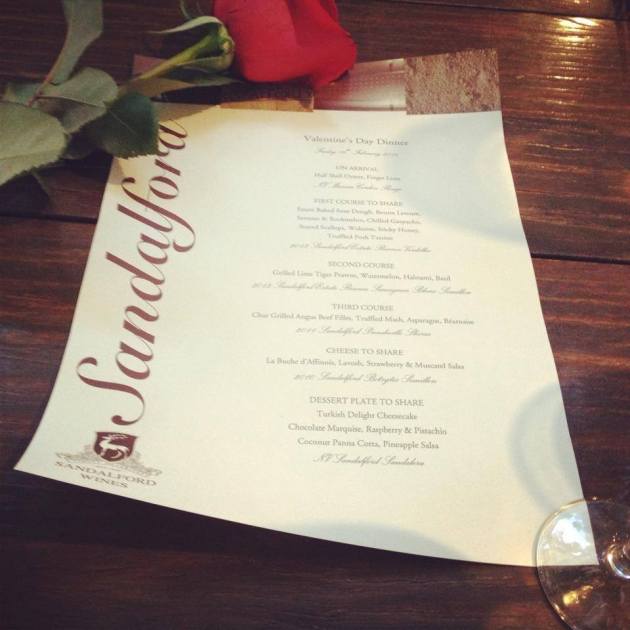 Sandalford
SANDALFORD
WINES
Valentine's Day Dinner
February
ON ARRIVAL
Half Shell Oyster, Finger Lime
NV
FIRST COURSE TO SHARE
Baked Sour Dough, Beurre
Sesame & Chilled Gazpacho,
Seared Scallops, Wakame, Sticky Honey,
Truffled Pork Terrine
Sandalford Estate Reserve Verdelho
SECOND COURSE
Grilled Lime Tiger Prawns, Watermelon, Haloumi, Basil
Sandalford Estate Reserve Sauvignon Blanc Semillon
THIRD COURSE
Char Grilled Angus Beef Fillet, Truffled Mash, Asparagus, Béarnaise
Sandalford Prendiville Shiraz
CHEESE TO SHARE
La Buche d'Affinois, Lavosh, Strawberry & Muscand Salsa
2010 Sandalford Botrytis Semillon
DESSERT PLATE TO SHARE
Turkish Delight Cheesecake
Chocolate Marquise, Raspberry & Pistachio
Coconut Panna Cotta, Pineapple Salsa
NV Sandalford Sandalera